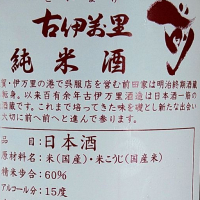 古伊萬里
純米酒
賀・伊万里の港で呉服店を営む前田家は明治終期酒蔵
転身。以来百有余年古伊万里酒造は日本酒一筋の
酒蔵です。これまで培ってきた味を礎とし新たな出会い
大切に前へ前へと進んで参ります。
品目：日本酒
原材料名：米（国産）・米こうじ（国産米）
精米歩合：60%
アルコール分：15度